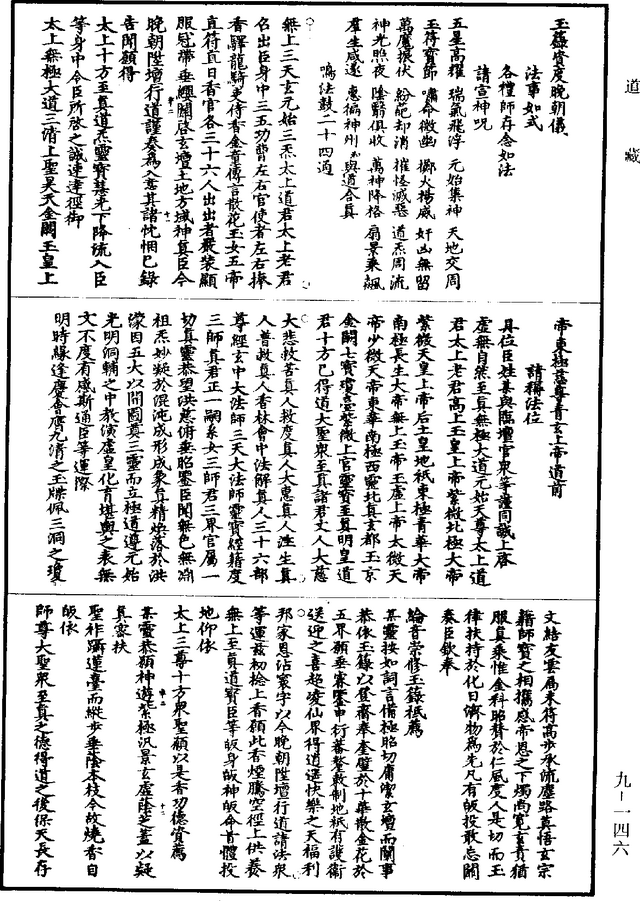 道藏
玉籙資度晚朝儀
法事如式
各禮師存念如法
請宣神呪
五星高羅 瑞氣飛浮 元始集神 天地交周
玉符寶節 嘯命微幽 擲火揚威 奸凶無留
萬魔振伏 紛葩却消 摧怪滅惡 道炁周流
神光照夜 陰翳俱收 萬神降格 扇景乘飆
羣生咸遂 惠徧神州 與道合真
鳴法鼓二十四通
無上三天玄元始三炁太上道君太上老君
名出臣身中三五功曹左右官使者左右捧
香驛龍騎吏侍香金童傳言散花玉女五帝
直符直日香官各三十六人出出者嚴裝顯
服冠帶垂纓關啓玄壇土地方域神真臣今
晚朝陞壇行道謹奏為入意其諸忱悃已錄
告聞願得
太上十方至真道炁靈寶慧光下降流入臣
等身中令臣所啓之誠速達徑御
太上無極大道三清上聖昊天金闕玉皇上
帝東極慈尊青玄上帝道前
請稱法位
具位臣姓某與臨壇官衆等謹同誠上啓
虛無自然至真無極大道元始天尊太上道
君太上老君高上玉皇上帝紫微北極大帝
紫微天皇上帝后土皇地祇東極青華大帝
南極長生大帝無上玉帝玉虛上帝太微天
帝少微天帝東華南極西靈北真玄都玉京
金闕七寶瓊臺紫微上宮靈寶至真明皇道
君十方已得道大聖衆至真諸君丈人大慈
大悲救苦真人救度真人大惠真人法生真
人普救真人香林會中法解真人三十六部
尊經玄中大法師三天大法師靈寶經籍度
三師真君正一嗣系女三師君三界官屬一
切真靈恭望洪慈俯垂昭鑒臣聞無色無淵
祖炁妙凝於混沌成形成象真精煥落於洪
濛因五大以開圖奠三靈而立極道遵元始
光明洞輔之中教演虛皇化育堪輿之表無
文不度有感斯通臣等運際
明時緣逢慶會膺九清之玉牒佩三洞之瓊
文結友雲為束符高步承流塵路莫悟玄宗
籍師寶之相攜感帝恩之下燭尚寬玄責猶
服真乘惟金科昭替於仁風度人是切而玉
律扶持於化日濟物為先凡有皈投敢忘關
奏臣欽奉
綸音崇修玉籙祇薦
某靈按如詞言備極昭切膚潔玄壇而闡事
恭依玉籙以登齋奉奎璧於十華散金花於
五界願垂睿鑒申衍蕃釐敷制地祇有護衛
送迎之喜超凌仙界得逍遥快樂之天福利
邦家恩沾寰宇以今晚朝陞壇行道請法衆
等運茲初捻上香願此香煙騰空徑上供養
無上至真道寶臣等皈身皈神皈命首體投
地仰依
太上三尊十方衆聖願以是香功德資薦
某靈恭願神遊紫極汎景玄虛蔭芝蓋以凝
真密扶
聖祚躋蓮臺而縱步垂蔭本枝今故燒香自
皈依
師尊大聖衆至真之德得道之後保天長存
九-一四六